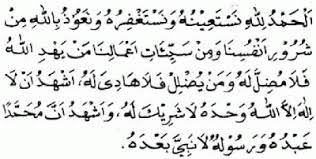 اَلْحَمْدُ لِلّٰهِ نَسْتَعِيْنُهُ وَنَسْتَغْفِرُهُ وَنَعُوْذُ بِاللّٰهِ مِنْ
شُرُوْرِ اَنْفُسِنَا وَمِنْ سَيِّئَاتِ اَعْمَالِنَا مَنْ يَهْدِ اللّٰهُ
فَلَا مُضِلَّ لَهُ وَمَنْ يُضْلِلْ فَلَا هَادِىَ لَهُ، اَشْهَدُ اَنْ لَا
اِلٰهَ اِلَّا اللّٰهُ وَحْدَهُ لَا شَرِيْكَ لَهُ، وَاَشْهَدُ اَنَّ مُحَمَّدًا
عَبْدُهُ وَرَسُوْلُهُ لَا نَبِيَّ بَعْدَهُ.